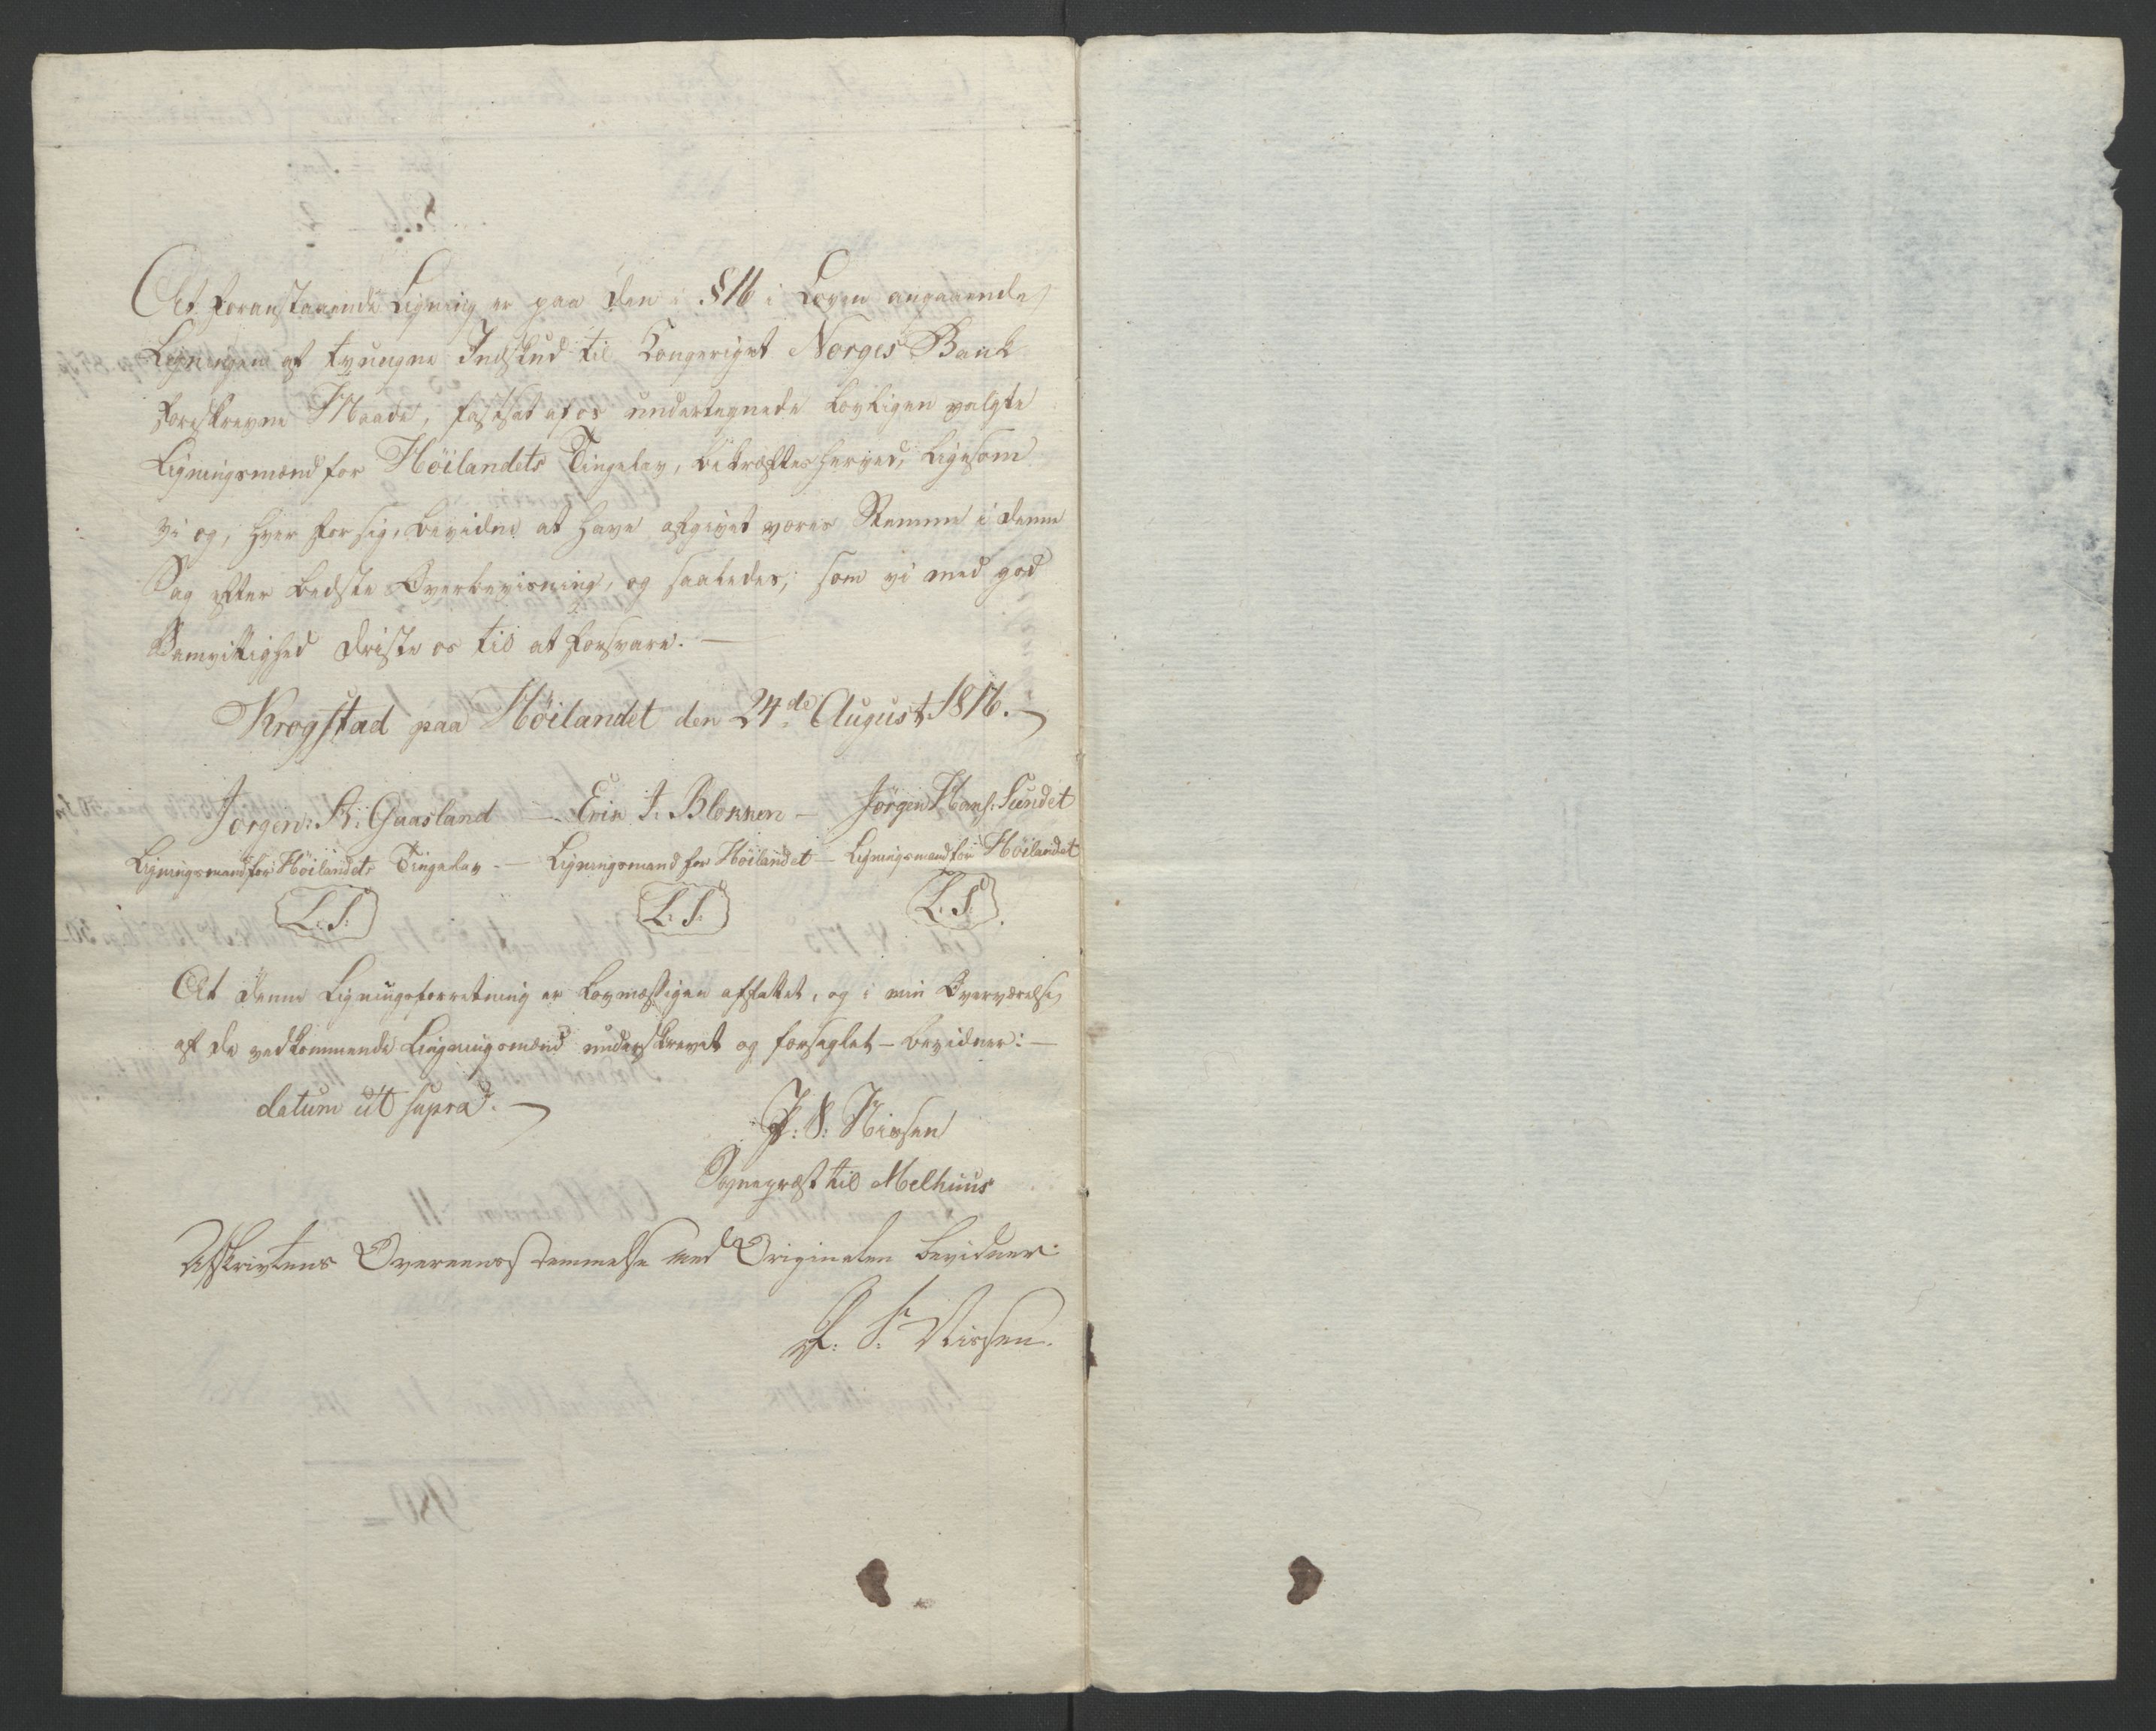 At foranstaaende Ligning er paa den i §16 i Loven angaaende
Ligningen af tvungne Indskud til Kongeriget Norges Bank
foreskrevne Maade, fastsat af os undertegnede lovligen valgte
Ligningsmænd for Höilandets Tingelav, bekræftes herved, ligesom
vi og, hver for sig, bevidne at have afgivet vores Stemme i denne
Sag efter bedste Overbeviisning, og saaledes, som vi med god
Samvittighed driste os til at forsvare. —
Krogstad paa Höilandet den 24de August 1816.
Jörgen: A: Gaasland — Erik J. Blokken — Jörgen Hans: Sundet
Ligningsmand for Höilandets Tingelav — Ligningsmand for Höilandet — Ligningsmand for Höilandet
L.S. L.S. L.S.
At denne Ligningsforretning er lovmæssigen affattet, og i min Overværelse
af de vedkommende Ligningsmænd underskrevet og forseglet — bevidner: —
datum ut supra. — P: S: Nissen
Sognepræst til Melhuus
Afskrivtens Overeensstemmelse med Originalen bevidner:
P. S: Nissen.